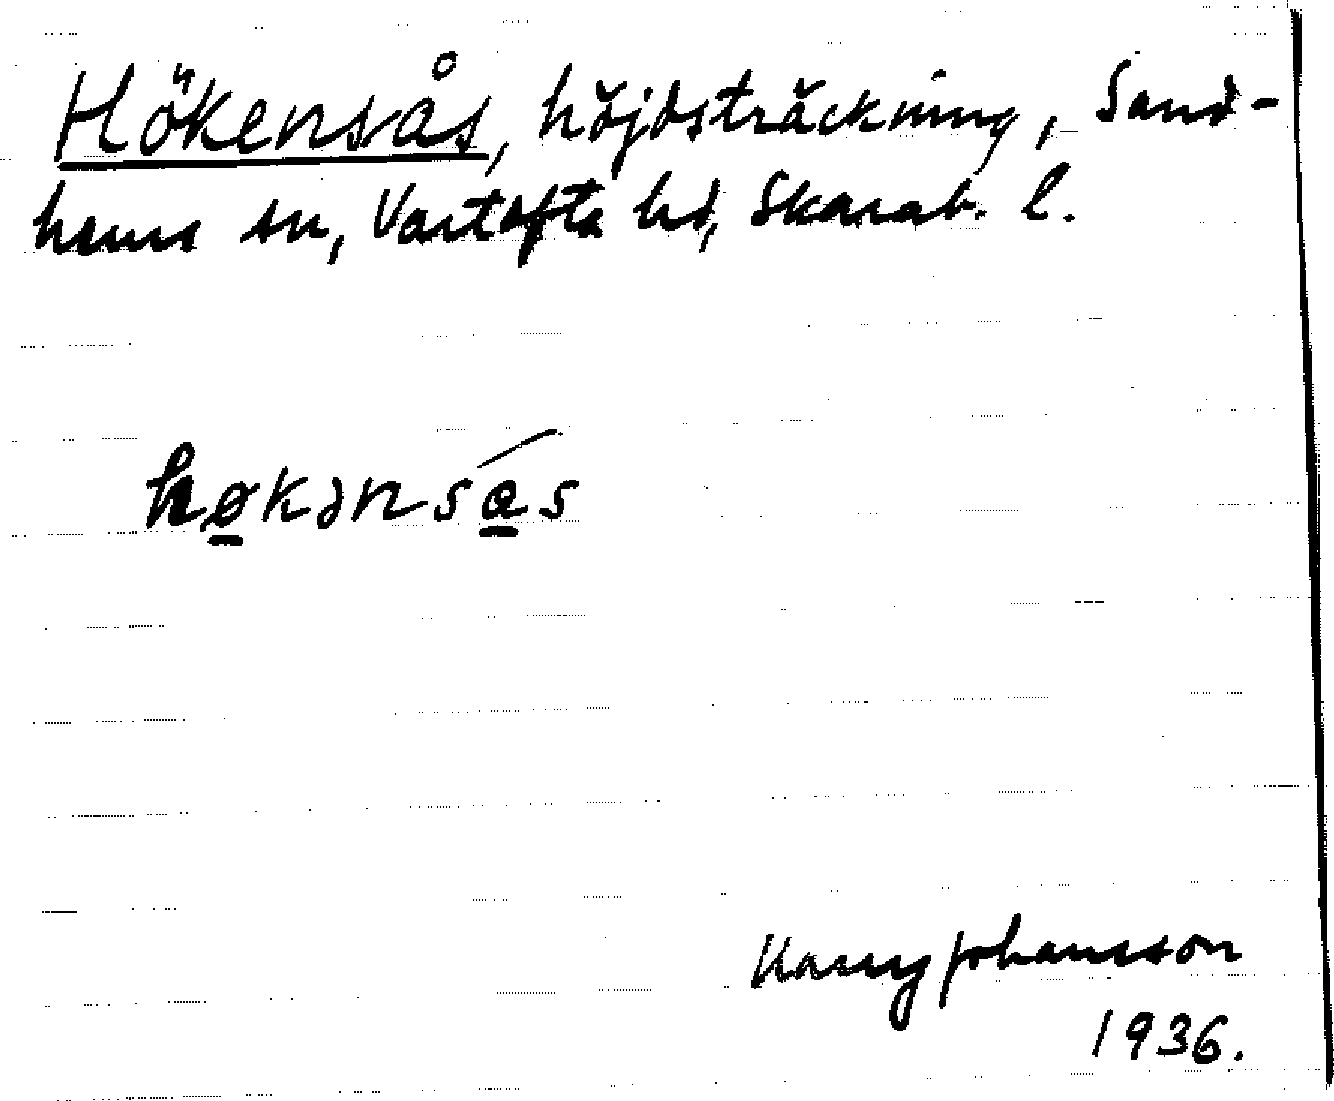 Hökensås, höjdsträckning, Sand-
hems sn, Vartofta hd, Skarab. l.
høkənsás
Harry Johansson
1936.